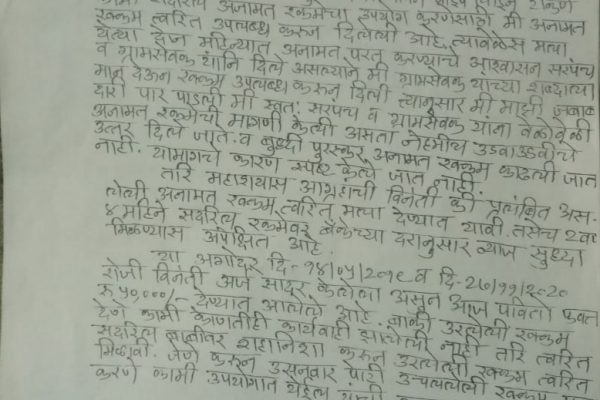 कामी सदरील अनामत रकमेचा उपयोग करणेसाठी मी अनामत
रक्कम त्वरित उपलब्ध करून दिलेली आहे. त्यावेळेस मला
येत्या दोन महिन्यात अनामत परत करण्याचे आश्वासन सरपंच
व ग्रामसेवक यांनि दिले असल्याने मी ग्रामसेवक यांच्या शब्दाला
मान देऊन रक्कम उपलब्ध करून दिली त्यानुसार मी माझी जबाब
दारी पार पाडली मी स्वत: सरपंच व ग्रामसेवक यांना वेळोवेळी
अनामत रकमेची मागणी केली असता नेहमीच उडवाउडवीचे
उत्तर दिले जाते. व बुध्दी पुरस्कर अनामत रक्कम काढली जात
नाही. यामागचे कारण स्पष्ट केले जात नाही.
तरि महाशयास आग्रहाची विनंती की प्रलंबित अस-
लेली अनामत रक्कम त्वरित मला देण्यात यावी. तसेच २वर्ष
४ महिने सदरिल रकमेवर बँकेच्या दरानुसार व्याज सुध्दा
मिळण्यास अपेक्षित आहे.
या अगोदर दि-१४/०५/२०१९ व दि-२७/११/२०२०
रोजी विनंती अर्ज सादर केलेला असुन आज पावितो फक्त
रु ५०,०००/- देण्यात आलेले आहे. बाकी उरलेली रक्कम
देणे कामी कोणतीही कार्यवाही झालेली नाही तरि त्वरित
सदरिल बाबीवर शहानिशा करुन उरलेली रक्कम त्वरित
मिळावी. जेणे करून उसनवार पोटी उचललेली रक्कम
करणे कामी उपयोगात येईल